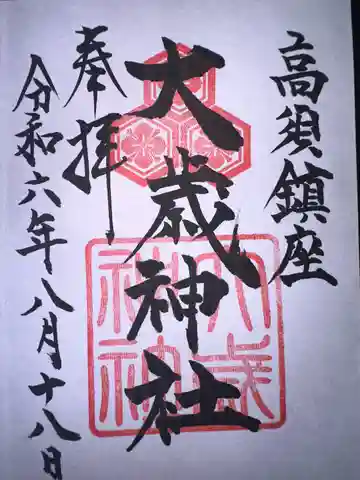 高須鎮座
大歳神社
奉拝
令和六年八月十八日
大歳
神神